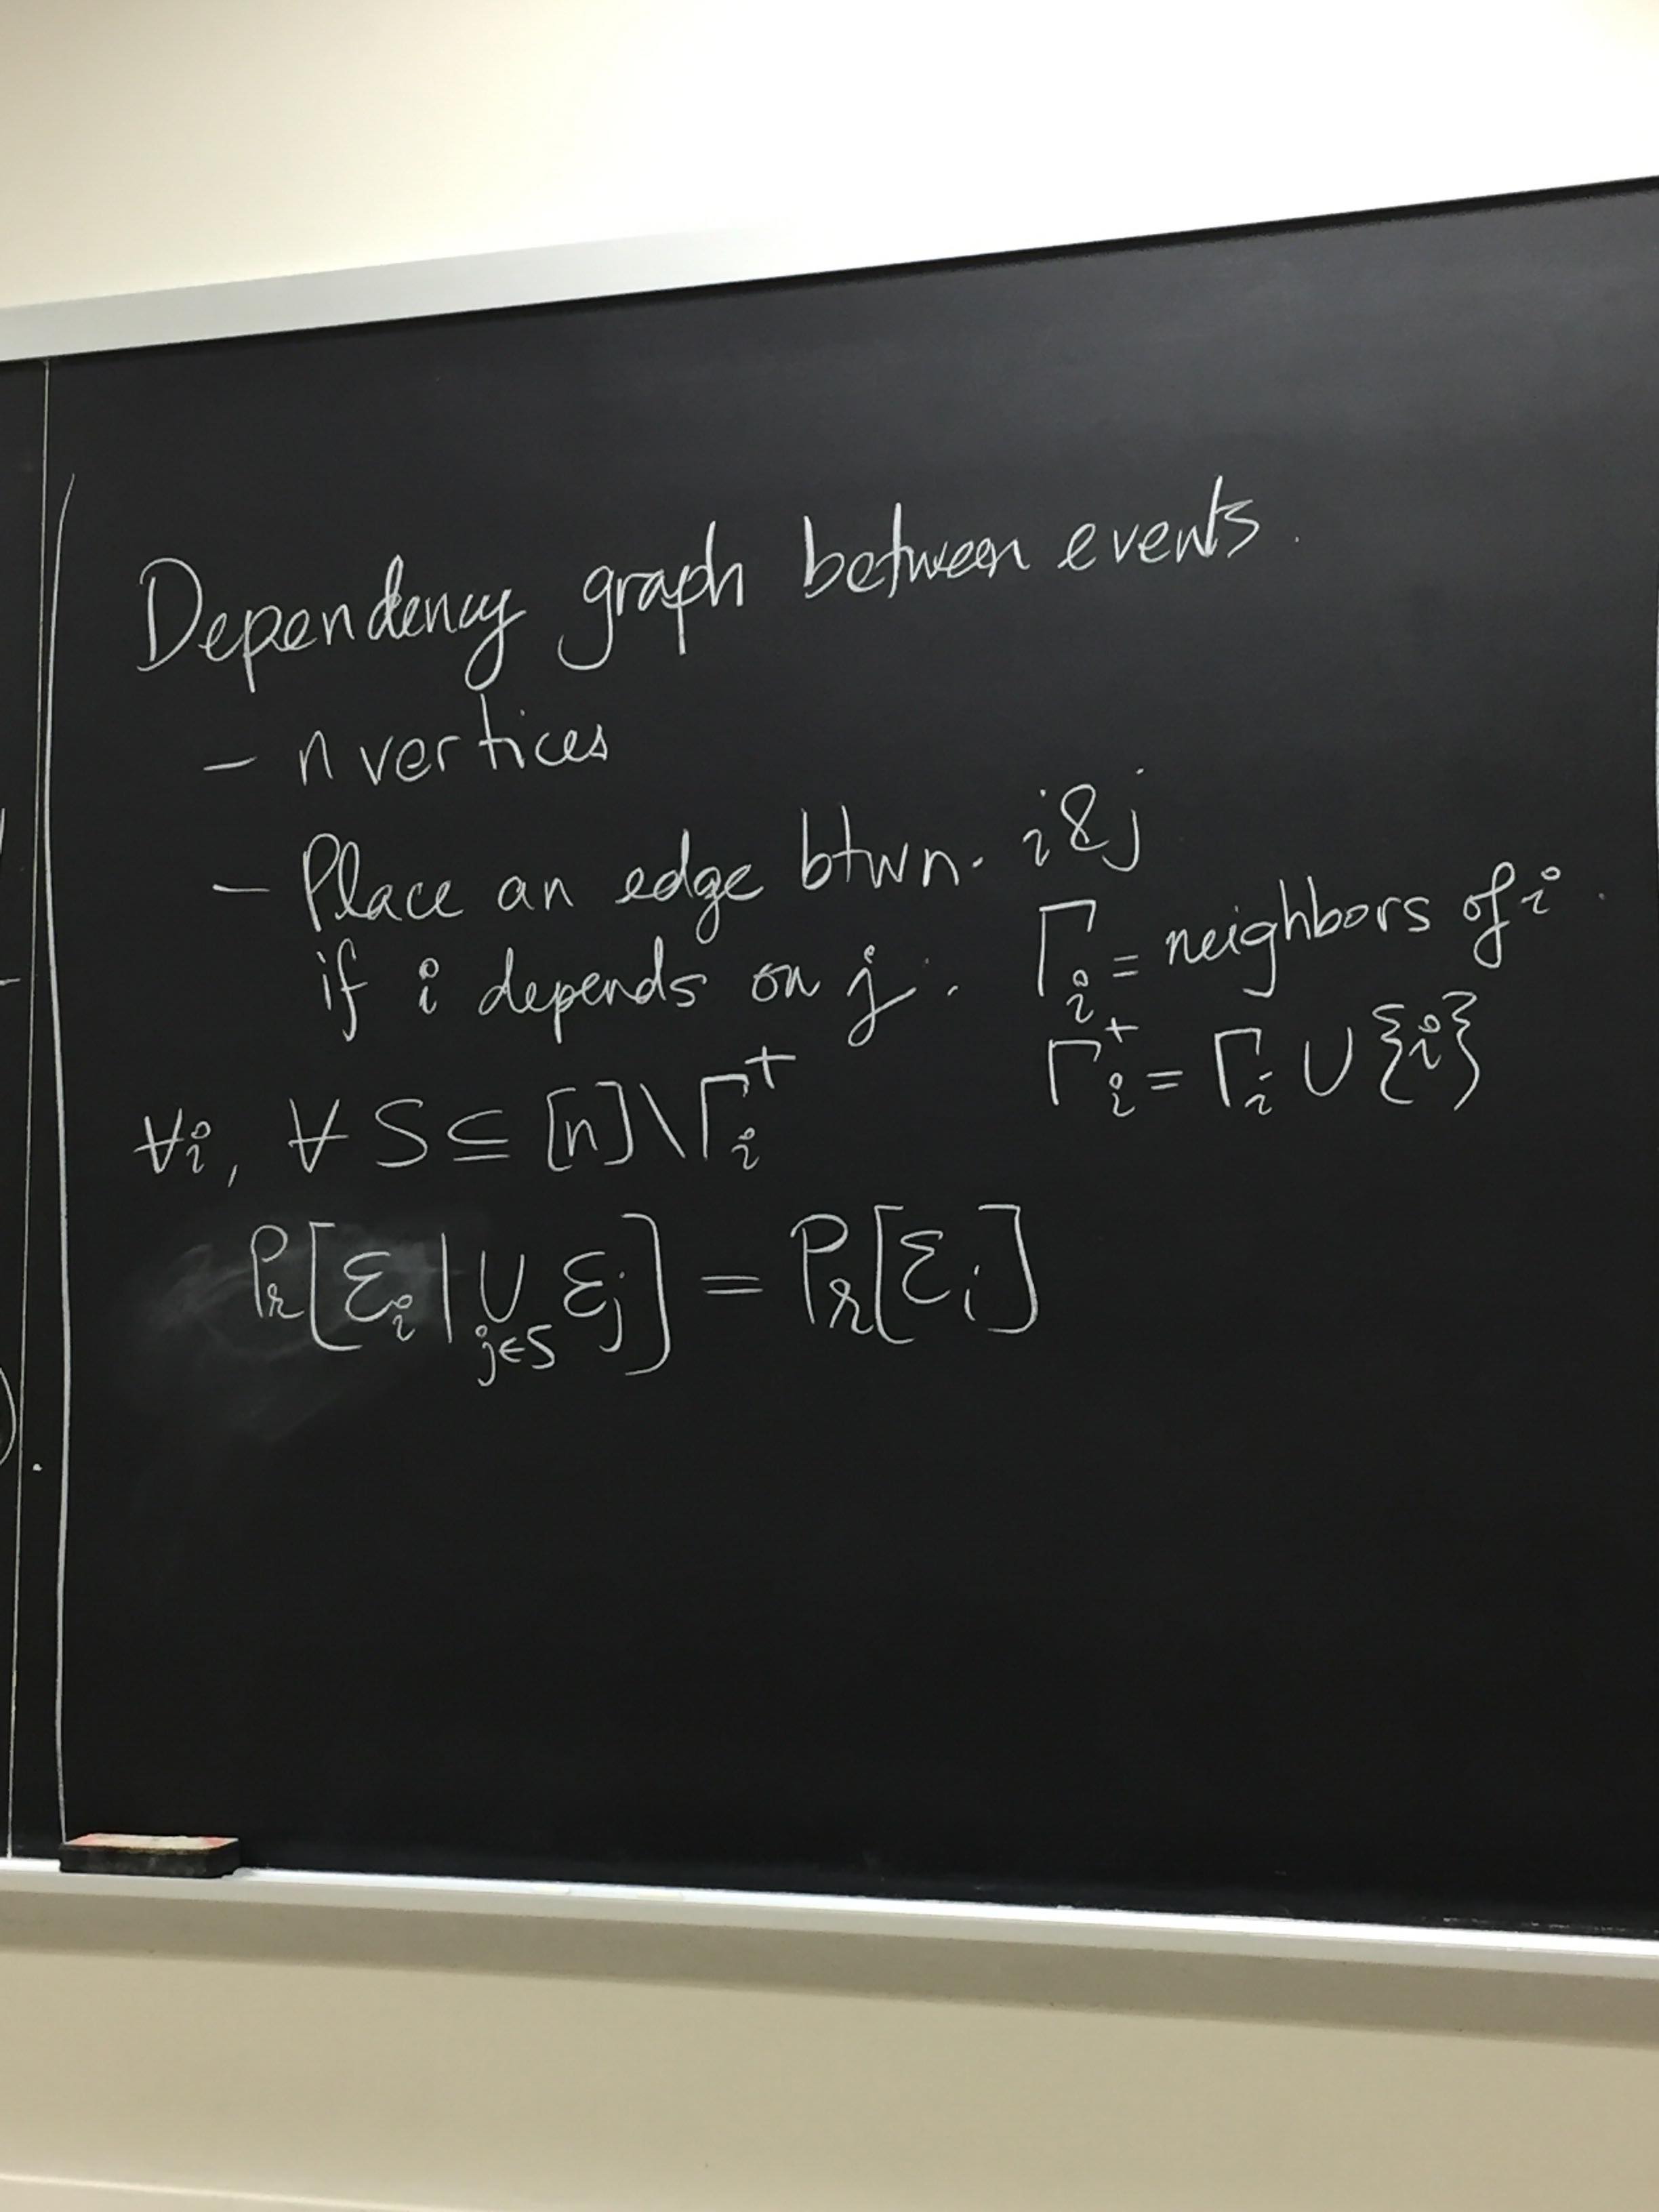 Dependency graph between events.
- n vertices
- Place an edge btwn. i & j
if i depends on j.
Γ_i = neighbors of i.
Γ_i^+ = Γ_i ∪ {i}
∀i, ∀ S ⊆ [n] \ Γ_i^+
Pr[ℰ_i | ∪_{j∈S} ℰ_j] = Pr[ℰ_i]